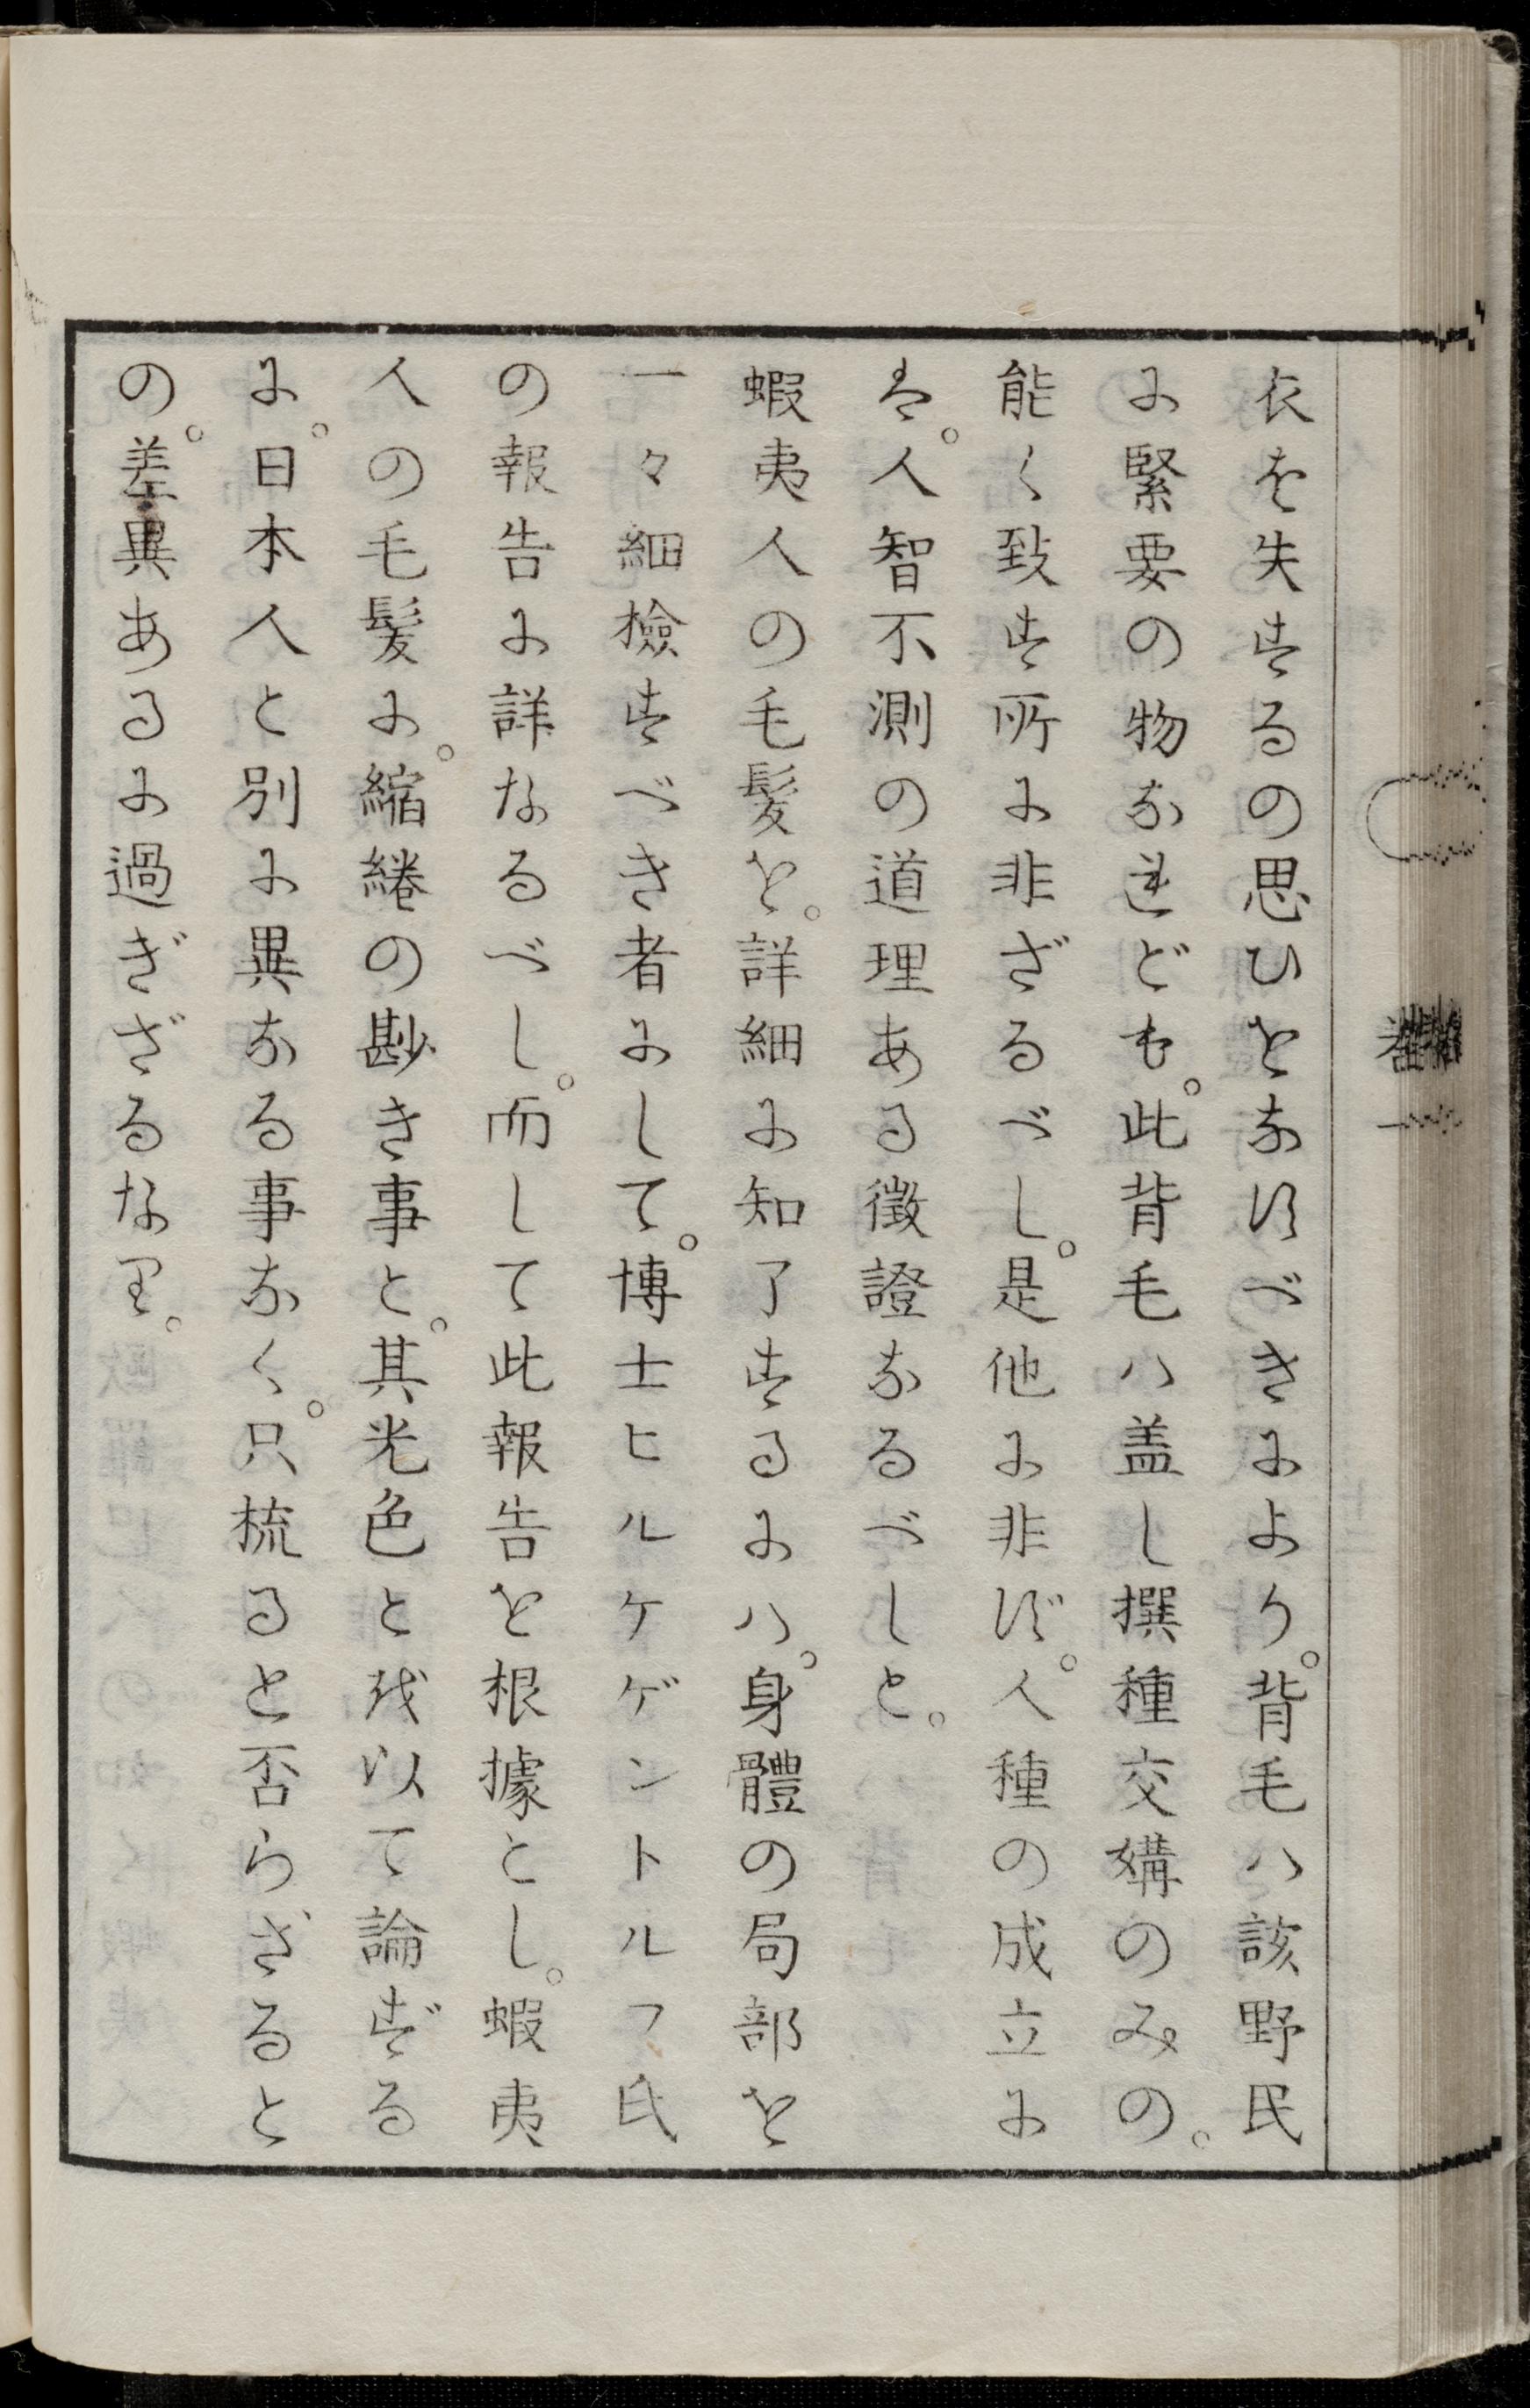 衣を失するの思ひをなすべきにより。背毛ハ該野民
に緊要の物なれども。此背毛ハ盖し撰種交媾のみの。
能く致す所に非ざるべし。是他に非ず。人種の成立に
は。人智不測の道理ある徴證なるべしと。
蝦夷人の毛髪を。詳細に知了するにハ。身體の局部を
一々細檢すべき者にして。博士ヒルケゲントルフ氏
の報告に詳なるべし。而して此報告を根據とし。蝦夷
人の毛髪に。縮綣の尠き事と。其光色とを以て論ずる
に。日本人と別に異なる事なく。只梳ると否らざると
の。差異あるに過ぎざるなり。
巻一